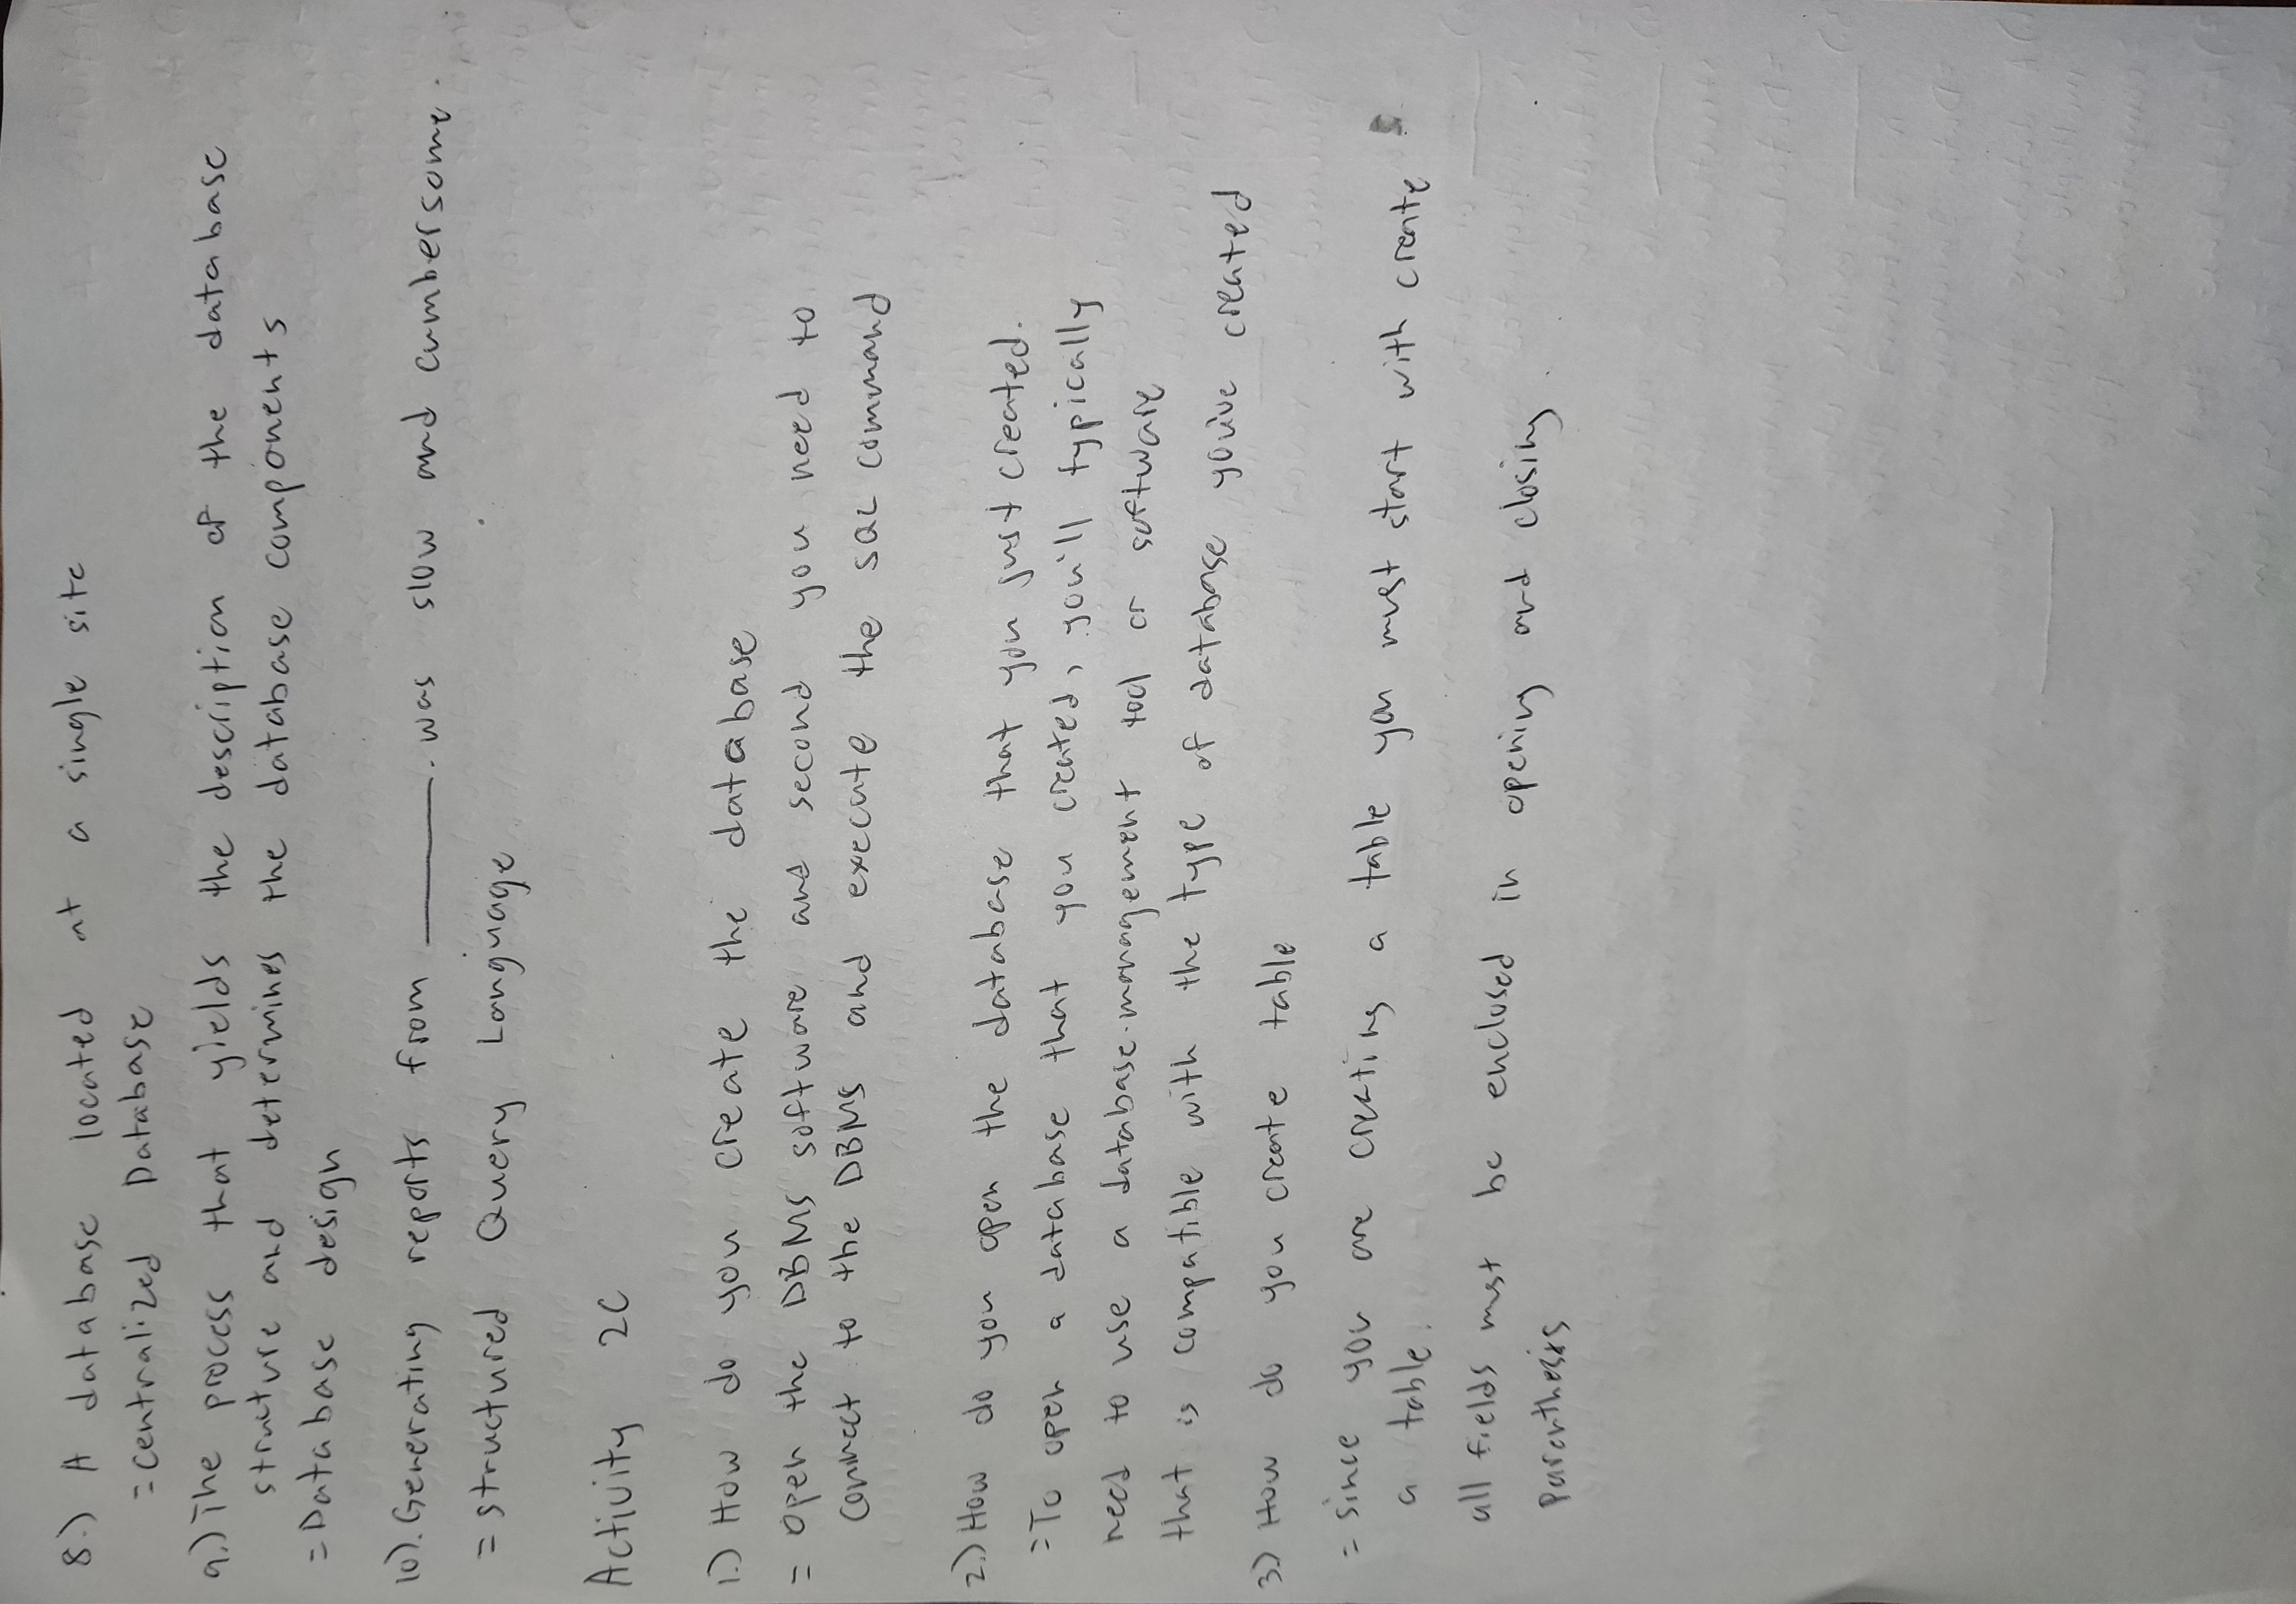 8.) A database located at a single site
= Centralized Database
9.) The process that yields the description of the database
structure and determines the database components
= Database design
10). Generating reports from ______. was slow and cumbersome.
= structured Query Language
Activity 2C
1.) How do you create the database
= Open the DBMS software and second you need to
connect to the DBMS and execute the SQL command
2.) How do you open the database that you just created.
= To open a database that you created, you'll typically
need to use a database management tool or software
that is compatible with the type of database you've created
3.) How do you create table
= Since you are creating a table you must start with create
a table.
all fields must be enclosed in opening and closing
parenthesis